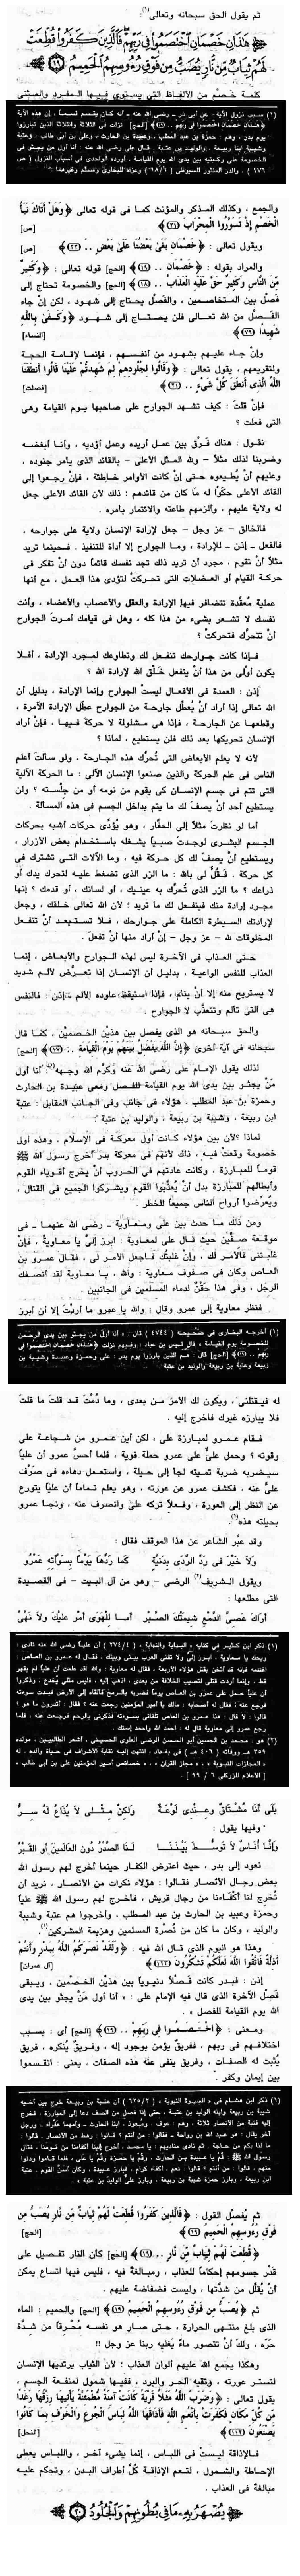 ثم يقول الحق سبحانه وتعالى(١):
﴿ هَٰذَانِ خَصْمَانِ اخْتَصَمُوا فِي رَبِّهِمْ فَالَّذِينَ كَفَرُوا قُطِّعَتْ
لَهُمْ ثِيَابٌ مِّن نَّارٍ يُصَبُّ مِن فَوْقِ رُءُوسِهِمُ الْحَمِيمُ ١٩ ﴾
كلمة خَصْم من الألفاظ التى يستوى فيها المفرد والمثنى
(١) سبب نزول الآية : عن أبى ذر - رضى الله عنه - أنه كان يقسم قسماً، إن هذه الآية
﴿هَٰذَانِ خَصْمَانِ اخْتَصَمُوا فِي رَبِّهِمْ .. (١٩)﴾ [الحج] نزلت فى الثلاثة والثلاثة الذين تبارزوا
يوم بدر، وهم : حمزة بن عبد المطلب، وعبيدة بن الحارث، وعلى بن أبى طالب، وعتبة
وشيبة ابنا ربيعة، والوليد بن عتبة . قال على رضى الله عنه : أنا أول من يجثو فى
الخصومة على ركبتيه بين يدى الله يوم القيامة . أورده الواحدى فى أسباب النزول ( ص
١٧٦ ) ، والدر المنثور للسيوطى (١٩/٦) وعزاه للبخارى ومسلم وغيرهما .
والجمع ، وكذلك المذكر والمؤنث كما فى قوله تعالى ﴿وَهَلْ أَتَاكَ نَبَأُ
الْخَصْمِ إِذْ تَسَوَّرُوا الْمِحْرَابَ (٢١)﴾ [ص]
ويقول تعالى : ﴿خَصْمَانِ بَغَىٰ بَعْضُنَا عَلَىٰ بَعْضٍ .. (٢٢)﴾ [ص]
والمراد بقوله : ﴿خَصْمَانِ .. (١٩)﴾ [الحج] قوله تعالى : ﴿وَكَثِيرٌ
مِّنَ النَّاسِ وَكَثِيرٌ حَقَّ عَلَيْهِ الْعَذَابُ .. (١٨)﴾ [الحج] والخصومة تحتاج إلى
فَصْل بين المتخاصمين ، والفَصْل يحتاج إلى شهود ، لكن إنْ جاء
الفَصْل من الله تعالى فلن يحتاج إلى شهود ﴿وَكَفَىٰ بِاللَّهِ
شَهِيدًا (٧٩)﴾ [النساء]
وإنْ جاء عليهم بشهود من أنفسهم ، فإنما لإقامة الحجة
ولتقريعهم ، يقول تعالى : ﴿وَقَالُوا لِجُلُودِهِمْ لِمَ شَهِدتُّمْ عَلَيْنَا قَالُوا أَنطَقَنَا
اللَّهُ الَّذِي أَنطَقَ كُلَّ شَيْءٍ .. (٢١)﴾ [فصلت]
فإنْ قلتَ : كيف تشهد الجوارح على صاحبها يوم القيامة وهى
التى فعلت ؟
نقول : هناك فَرْق بين عمل أريده وعمل أؤديه ، وأنا أبغضه
وضربنا لذلك مثلاً - ولله المثل الأعلى - بالقائد الذى يأمر جنوده ،
وعليهم أنْ يُطيعوه حتى إنْ كانت الأوامر خاطئة ، فإنْ رجعوا إلى
القائد الأعلى حكَوْا له ما كان من قائدهم ؛ ذلك لأن القائد الأعلى جعل
له ولاية عليهم ، وألزمهم طاعته والائتمار بأمره .
فالخالق - عز وجل - جعل لإرادة الإنسان ولاية على جوارحه ،
فالفعل - إذن - للإرادة ، وما الجوارح إلا أداة للتنفيذ . فحينما تريد
مثلاً أنْ تقوم ، مجرد أن تريد ذلك تجد نفسك قائماً دون أنْ تفكر فى
حركة القيام أو العضلات التى تحركتْ لتؤدى هذا العمل ، مع أنها
عملية مُعقّدة تتضافر فيها الإرادة والعقل والأعصاب والأعضاء ، وأنت
نفسك لا تشعر بشىء من هذا كله ، وهل فى قيامك أمرتَ الجوارح
أنْ تتحرَّك فتحركتْ؟
فإذا كانت جوارحك تنفعل لك وتطاوعك لمجرد الإرادة ، أفلا
يكون أَوْلَى من هذا أنْ ينفعل خَلْق الله لإرادة الله ؟
إذن : العمدة فى الأفعال ليستْ الجوارح وإنما الإرادة ، بدليل أن
الله تعالى إذا أراد أنْ يُعطِّل جارحة من الجوارح عطّل الإرادة الآمرة ،
وقطعها عن الجارحة ، فإذا هى مشلولة لا حركة فيها ، فإنْ أراد
الإنسان تحريكها بعد ذلك فلن يستطيع ، لماذا ؟
لأنه لا يعلم الأبعاض التى تُحرِّك هذه الجارحة ، ولو سألت أعلم
الناس فى علم الحركة والذين صنعوا الإنسان الآلى : ما الحركة الآلية
التى تتم فى جسم الإنسان كى يقوم من نومه أو من جِلْسته ؟ ولن
يستطيع أحد أنْ يصفَ لك ما يتم بداخل الجسم فى هذه المسألة .
أما لو نظرتَ مثلاً إلى الحفَّار ، وهو يُؤدِّى حركات أشبه بحركات
الجسم البشرى لوجدتَ صبياً يشغله باستخدام بعض الأزرار ،
ويستطيع أنْ يصفَ لك كل حركة فيه ، وما الآلات التى تشترك فى
كل حركة . فَقُلْ لى بالله : ما الزر الذى تضغط عليه لتحرك يدك أو
ذراعك ؟ ما الزر الذى تُحرِّك به عينيك ، أو لسانك ، أو قدمك ؟ إنها
مجرد إرادة منك فينفعل لك ما تريد ؛ لأن الله تعالى خلقك ، وجعل
لإرادتك السيطرة الكاملة على جوارحك ، فلا تستبعد أنْ تنفعل
المخلوقات لله - عز وجل - إنْ أراد منها أنْ تفعلَ .
حتى العذاب فى الآخرة ليس لهذه الجوارح والأبعاض ، إنما
العذاب للنفس الواعية ، بدليل أن الإنسان إذا تعرَّض لألم شديد
لا يستريح منه إلا أنْ ينام ، فإذا استيقظ عاوده الألم . إذن : فالنفس
هى التى تألم وتتعذَّب لا الجوارح .
والحق سبحانه هو الذى يفصل بين هذيْن الخصميْن ، كما قال
سبحانه فى آية أخرى ﴿إِنَّ اللَّهَ يَفْصِلُ بَيْنَهُمْ يَوْمَ الْقِيَامَةِ .. (١٧)﴾ [الحج]
لذلك يقول الإمام على رضى الله عنه وكرَّم الله وجهه(١): أنا أول
مَنْ يجثو بين يدى الله يوم القيامة للفصل ومعى عبيدة بن الحارث
وحمزة بن عبد المطلب . هؤلاء فى جانب وفى الجانب المقابل : عتبة
ابن ربيعة ، وشيبة بن ربيعة ، والوليد بن عتبة .
لماذا ؟لأن بين هؤلاء كانت أول معركة فى الإسلام ، وهذه أول
خصومة وقعتْ فيه ، ذلك لأنهم فى معركة بدر أخرج رسول الله ﷺ
قوماً للمبارزة ، وكانت عادتهم فى الحروب أنْ يخرج أقوياء القوم
وأبطالهم للمبارزة بدل أنْ يُعذِّبوا القوم ويشركوا الجميع فى القتال ،
ويُعرِّضوا أرواح الناس جميعاً للخطر .
ومن ذلك ما حدث بين على ومعاوية - رضى الله عنهما - فى
موقعة صِفِّين حيث قال على لمعاوية : ابرز إلىَّ يا معاوية ، فإنْ
غلبتنى فالأمر لك ، وإنْ غلبتُك فاجعل الأمر لى ، فقال عمرو بن
العاص وكان فى صفوف معاوية : والله ، يا معاوية لقد أنصفك
الرجل ، وفى هذا حَقْنٌ لدماء المسلمين فى الجانبين .
فنظر معاوية إلى عمرو وقال : والله يا عمرو ما أردتَ إلا أن أبرز
(١) أخرجه البخارى فى صحيحه ( ٤٧٤٤ ) قال : « أنا أول من يجثو بين يدى الرحمن
للخصومة يوم القيامة ، قال قيس بن عباد : وفيهم نزلت ﴿هَٰذَانِ خَصْمَانِ اخْتَصَمُوا فِي
رَبِّهِمْ .. (١٩)﴾ [الحج] قال : هم الذين بارزوا يوم بدر ، على وحمزة وعبيدة وشيبة بن
ربيعة وعتبة بن ربيعة والوليد بن عتبة .
له فيقتلنى ، ويكون لك الأمر من بعدى ، وما دُمْتَ قد قلتَ ما قلتَ
فلا يبارزه غيرك فاخرج إليه .
فقام عمرو لمبارزة على ، لكن أين عمرو من شجاعة على
وقوته ؟ وحمل علىٌّ على عمرو حملة قوية ، فلما أحسَّ عمرو أن علياً
سيضربه ضربة تميته لجأ إلى حيلة ، واستعمل دهاءه فى صَرْف
علىٍّ عنه ، فكشف عمرو عن عورته ، وهو يعلم تماماً أن علياً يتورع
عن النظر إلى العورة ، وفعلاً تركه على وانصرف عنه ، ونجا عمرو
بحيلته هذه(١) .
وقد عبَّر الشاعر عن هذا الموقف فقال :
وَلاَ خَيْرَ فِى رَدِّ الرَّدَى بِدَنِيَّةٍ كَما رَدَّهَا يَوْماً بِسَوْأتِهِ عَمْرُو
ويقول الشريف(٢) الرضى - وهو من آل البيت - فى القصيدة
التى مطلعها :
أرَاكَ عَصِىَّ الدَّمْعِ شِيمَتُكَ الصَّبْرُ أمَا لِلْهَوَى أمْرٌ عليْكَ ولاَ نَهْىُ
(١) ذكر ابن كثير فى كتابه « البداية والنهاية » ( ٢٧٤/٤ ) أن علياً رضى الله عنه نادى :
ويحك يا معاوية ، ابرز إلىَّ ولا تفنى العرب بينى وبينك ، فقال له عمرو بن العاص :
اغتنمه فإنه قد أثخن بقتل هؤلاء الأربعة ، فقال له معاوية : والله لقد علمت أن علياً لم يقهر
قط ، وإنما أردت قتلى لتصيب الخلافة من بعدى ، اذهب إليك ، فليس مثلى يُخدع ، وذكروا
أن علياً حمل على عمرو بن العاص يوماً فضربه بالرمح فألقاه إلى الأرض فبدت سوءته
فرجع عنه ، فقال له أصحابه : مالك يا أمير المؤمنين رجعت عنه ؟ فقال : أتدرون ما هو ؟
قالوا : لا . قال : هذا عمرو بن العاص تلقانى بسوءته فذكرنى بالرحم فرجعت عنه ، فلما
رجع عمرو إلى معاوية قال له : احمد الله واحمد إستك .
(٢) هو : محمد بن الحسين أبو الحسن الرضى العلوى الحسينى ، أشعر الطالبيين ، مولده
٣٥٩ هـ ووفاته ( ٤٠٦ هـ ) فى بغداد ، انتهت إليه نقابة الأشراف فى حياة والده ، له
« المجازات النبوية » ، « مجاز القرآن » ، « خصائص أمير المؤمنين على بن أبى طالب » .
[ الأعلام للزركلى ٦ / ٩٩ ] .
بلَى أنَا مُشْتَاقٌ وعِنْدِى لَوْعَةٌ ولَكِنْ مِثْلِى لاَ يُذَاعُ لَهُ سِرُّ
وفيها يقول :
وَإنَّا أُنَاسٌ لاَ تَوسُّطَ بَيْنَنَا لَنَا الصَّدْرُ دُون العَالَمينَ أو القَبْرُ
نعود إلى بدر ، حيث اعترض الكفار حينما أخرج لهم رسول الله
بعض رجال الأنصار فقالوا : هؤلاء نكرات من الأنصار ، نريد أن
تُخرِج لنا أكْفَاءنا من رجال قريش ، فأخرج لهم رسول الله ﷺ علياً
وحمزة وعبيد بن الحارث بن عبد المطلب ، وأخرجوا هم عتبة وشيبة
والوليد ، وكان ما كان من نُصْرة المسلمين وهزيمة المشركين(١).
وهذا هو اليوم الذى قال الله فيه : ﴿وَلَقَدْ نَصَرَكُمُ اللَّهُ بِبَدْرٍ وَأَنتُمْ
أَذِلَّةٌ فَاتَّقُوا اللَّهَ لَعَلَّكُمْ تَشْكُرُونَ (١٢٣)﴾ [آل عمران]
إذن : فبدر كانت فَصْلاً دنيوياً بين هذيْن الخَصْمين ، ويبقى
فَصْل الآخرة الذى قال فيه الإمام على : « أنا أول مَنْ يجثو بين يدى
الله يوم القيامة للفصل » .
ومعنى : ﴿اخْتَصَمُوا فِي رَبِّهِمْ .. (١٩)﴾ [الحج] أى : بسبب
اختلافهم فى ربهم ، ففريق يؤمن بوجود إله ، وفريق يُنكره ، فريق
يُثبت له الصفات ، وفريق ينفى عنه هذه الصفات ، يعنى : انقسموا
بين إيمان وكفر .
(١) ذكر ابن هشام فى « السيرة النبوية » ( ٦٢٥/٢ ) أن عتبة بن ربيعة خرج بين أخيه
شيبة بن ربيعة وابنه الوليد بن عتبة ، حتى إذا فصل من الصف دعا إلى المبارزة ، فخرج
إليه فتية من الأنصار ثلاثة وهم : عوف ، ومعوذ - ابنا الحارث - وأمهما عفراء - ورجل
آخر يقال : هو عبد الله بن رواحة - فقالوا : من أنتم ؟ قالوا : رهط من الأنصار . قالوا :
ما لنا بكم من حاجة . ثم نادى مناديهم : يا محمد ، أخرج إلينا أكفاءنا من قومنا ، فقال
رسول الله ﷺ : قُمْ يا عبيدة بن الحارث ، وقُمْ يا حمزة وقُمْ يا على . فلما قاموا ودنوا
منهم ، قالوا : من أنتم ؟ قالوا : نعم ، أكفاء كرام ، فبارز عبيدة ، وكان أسنَّ القوم ، عتبة
ابن ربيعة ، وبارز حمزة شيبة بن ربيعة ، وبارز علىّ الوليد بن عتبة .
ثم يُفصِّل القول : ﴿فَالَّذِينَ كَفَرُوا قُطِّعَتْ لَهُمْ ثِيَابٌ مِّن نَّارٍ يُصَبُّ مِن
فَوْقِ رُءُوسِهِمُ الْحَمِيمُ (١٩)﴾ [الحج]
﴿قُطِّعَتْ لَهُمْ ثِيَابٌ مِّن نَّارٍ .. (١٩)﴾ [الحج] كأن النار تفصيل على
قَدْر جسومهم إحكاماً للعذاب ، ومبالغة فيه ، فليس فيها اتساع يمكن
أنْ يُقلِّل من شدَّتها ، وليست فضفاضة عليهم .
ثم ﴿يُصَبُّ مِن فَوْقِ رُءُوسِهِمُ الْحَمِيمُ (١٩)﴾ [الحج] والحميم : الماء
الذى بلغ منتهى الحرارة ، حتى صار هو نفسه مُحْرِقاً من شدَّة
حَرِّه ، ولك أنْ تتصور ماءً يَغليه ربنا عز وجل !!
وهكذا يجمع الله عليهم ألوان العذاب ؛ لأن الثياب يرتديها الإنسان
لتستر عورته ، وتقيه الحر والبرد ، ففيها شمول لمنفعة الجسم ،
يقول تعالى : ﴿وَضَرَبَ اللَّهُ مَثَلاً قَرْيَةً كَانَتْ آمِنَةً مُّطْمَئِنَّةً يَأْتِيهَا رِزْقُهَا رَغَدًا
مِّن كُلِّ مَكَانٍ فَكَفَرَتْ بِأَنْعُمِ اللَّهِ فَأَذَاقَهَا اللَّهُ لِبَاسَ الْجُوعِ وَالْخَوْفِ بِمَا كَانُوا
يَصْنَعُونَ (١١٢)﴾ [النحل]
فالإذاقة ليستْ فى اللباس ، إنما بشىء آخر ، واللباس يعطى
الإحاطة والشمول ، لتعم الإذاقة كُلَّ أطراف البدن ، وتحكم عليه
مبالغة فى العذاب .
﴿ يُصْهَرُ بِهِ مَا فِي بُطُونِهِمْ وَالْجُلُودُ ٢٠ ﴾